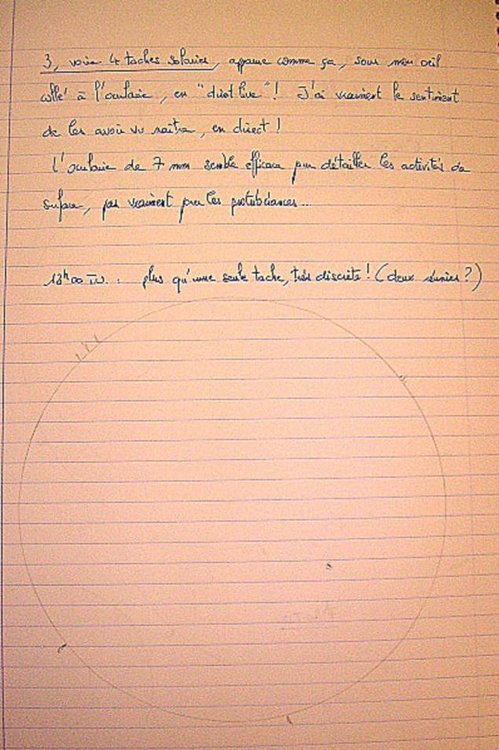 3, voire 4 taches solaires, apparue comme ça, sous mon œil
collé à l'oculaire, en "direct live"! J'ai vraiment le sentiment
de les avoir vu naître, en direct!
L'oculaire de 7 mm semble efficace pour détailler les activités de
surface, pas vraiment pour les protubérances...
13h00 TU : plus qu'une seule tache, très discrète! (deux réunies?)